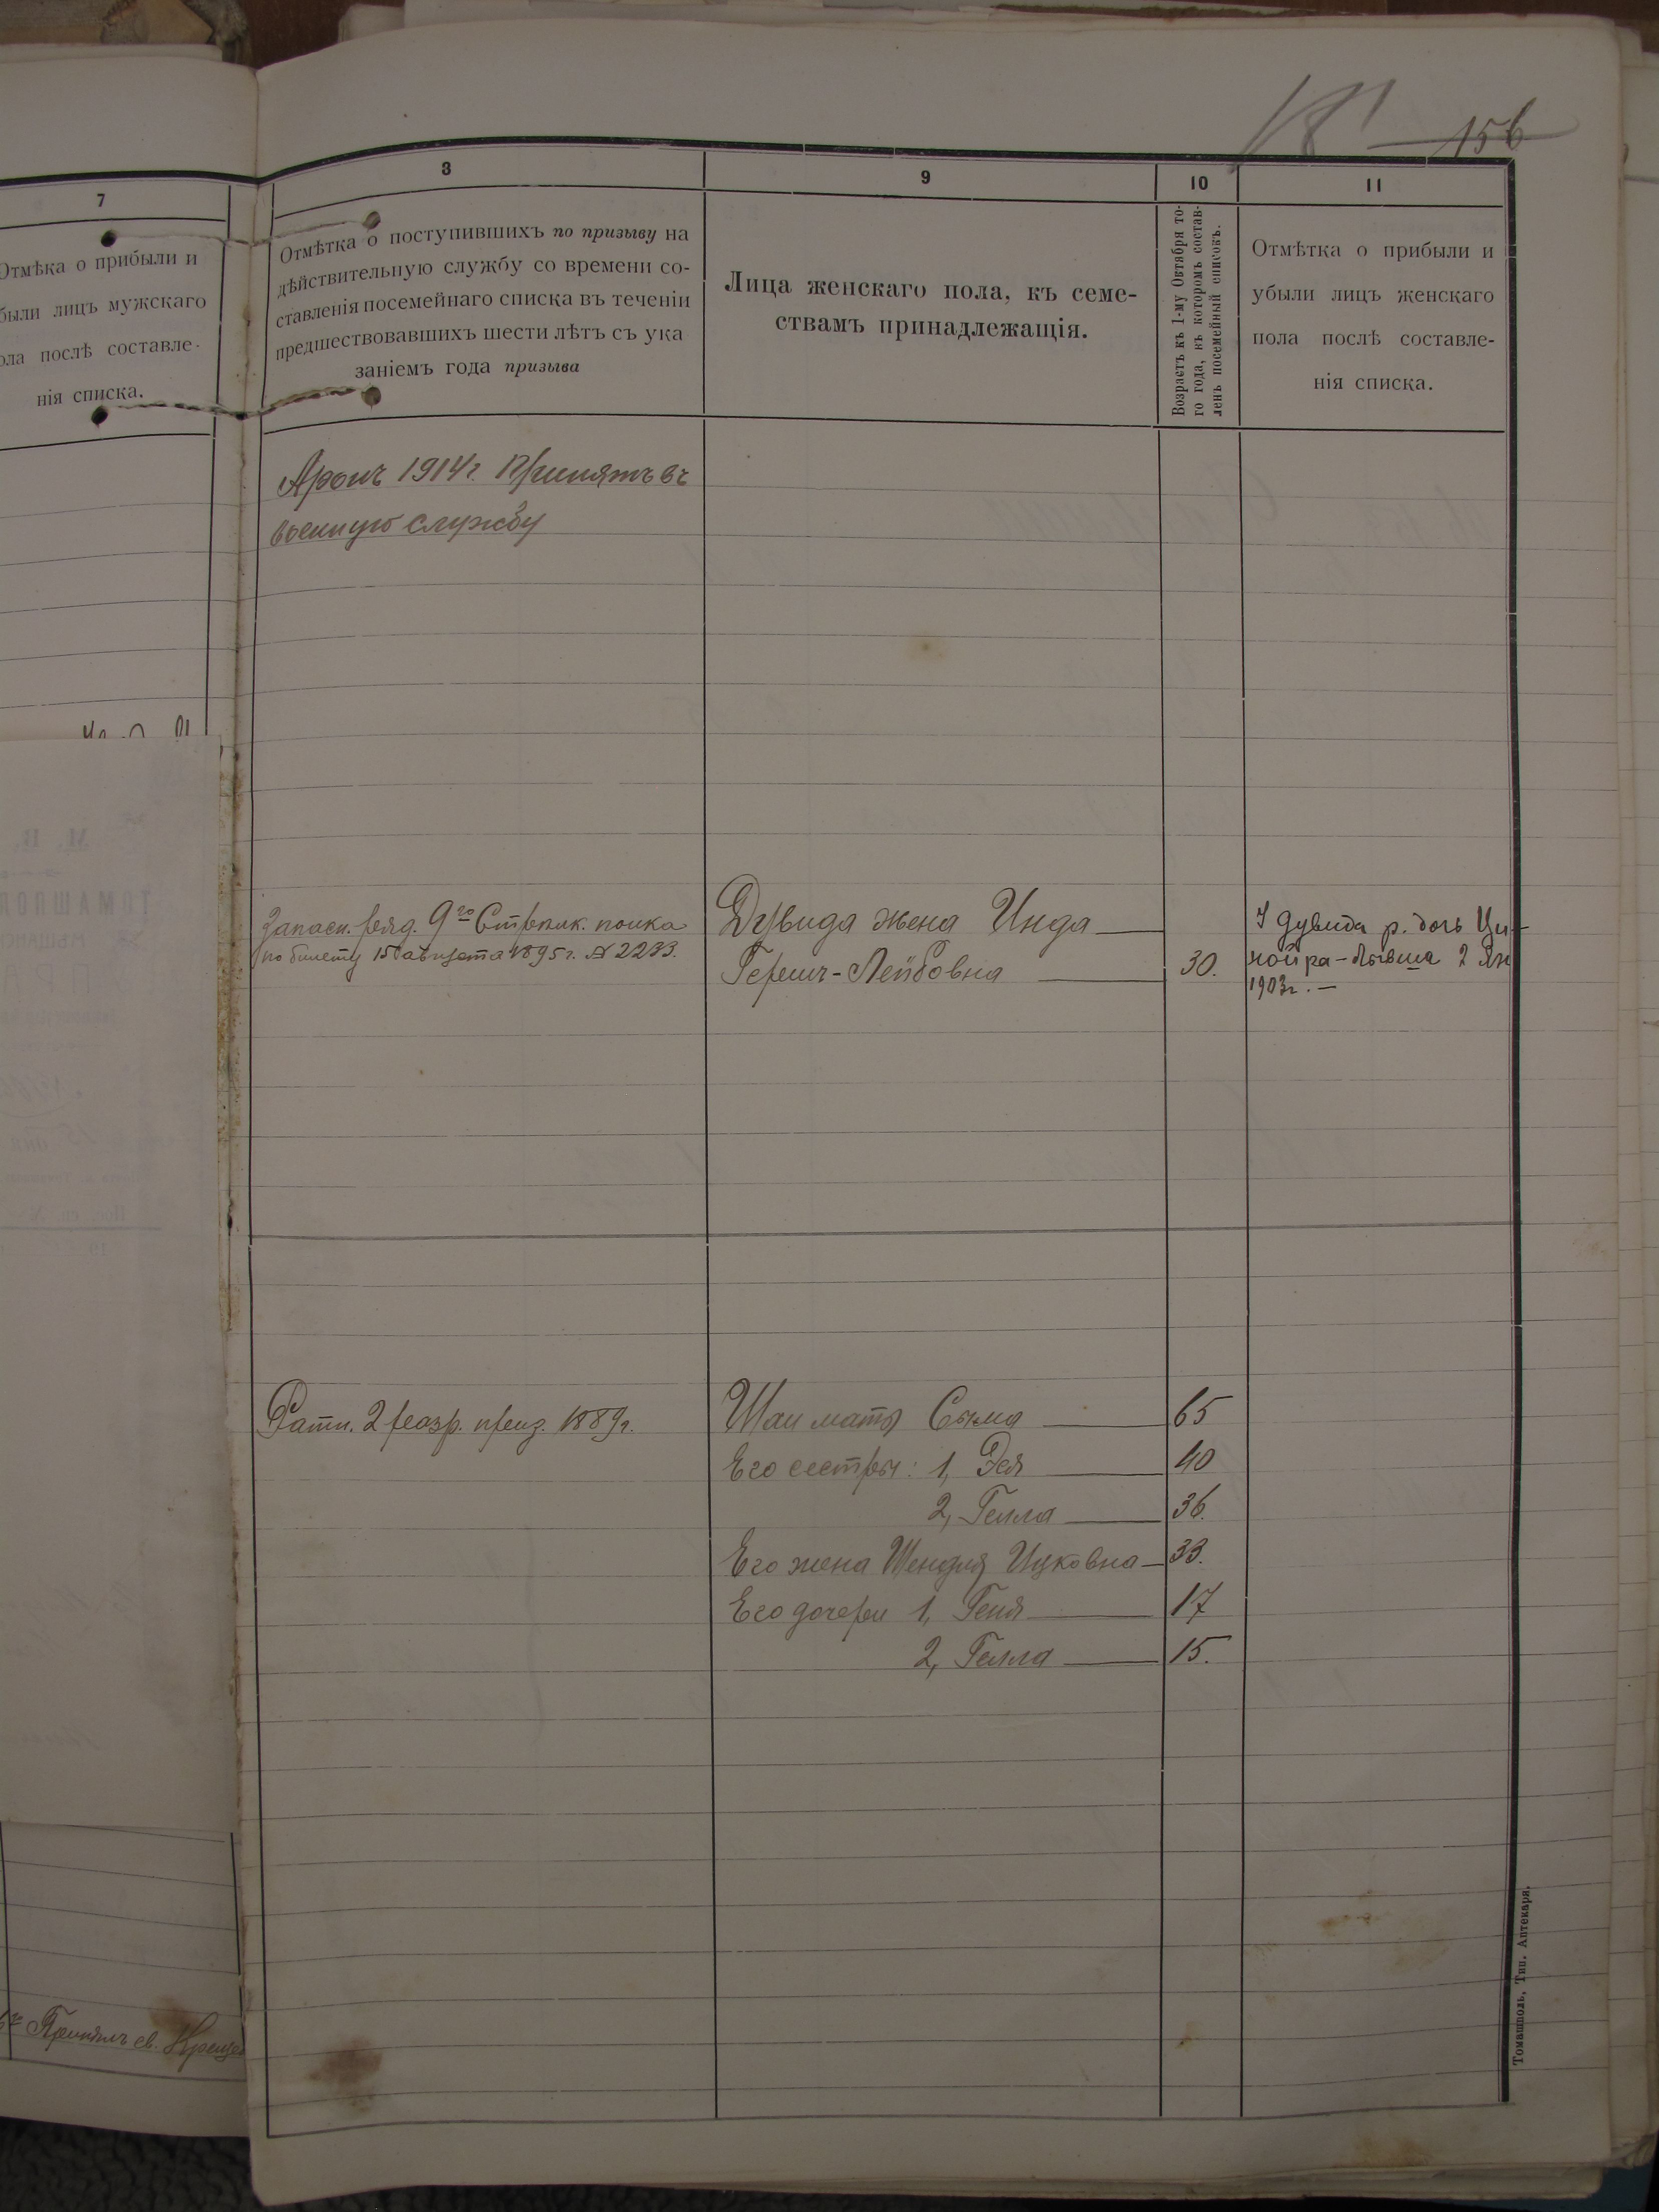 181 156
7
Отмѣка о прибыли и
были лицъ мужскаго
ола послѣ составле-
нія списка.
3
Отмѣтка о поступившихъ по призыву на
дѣйствительную службу со времени со-
ставленія посемейнаго списка въ теченіи
предшествовавшихъ шести лѣтъ съ ука
заніемъ года призыва
9
Лица женскаго пола, къ семе-
ствамъ принадлежащія.
10
Возрастъ къ 1-му Октября то-
го года, въ которомъ состав-
ленъ посемейный списокъ.
11
Отмѣтка о прибыли и
убыли лицъ женскаго
пола послѣ составле-
нія списка.
Аронъ 1914 г. Принятъ въ
военную службу
Запасн. ряд. 9го Стрѣлк. полка
по билету 15 августа 1895 г. № 2233.
Дувида жена Инда
Гершъ-Лейбовна 30.
У Дувида р. дочь Ци-
пойра-
1903 г. —
Ратн. 2 разр. приз. 1889 г.
Шаи мать Сыма 65
Его сестры: 1, Эся 40
2, Гелла 36.
Его жена Шендля Ицковна 33.
Его дочери 1, Геня 17
2, Гелла 15.
Принялъ св.
Томашполь, Тип. Аптекаря.